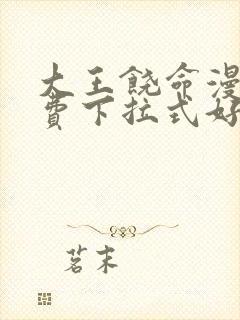 大王饶命漫
费下拉式好
茗末